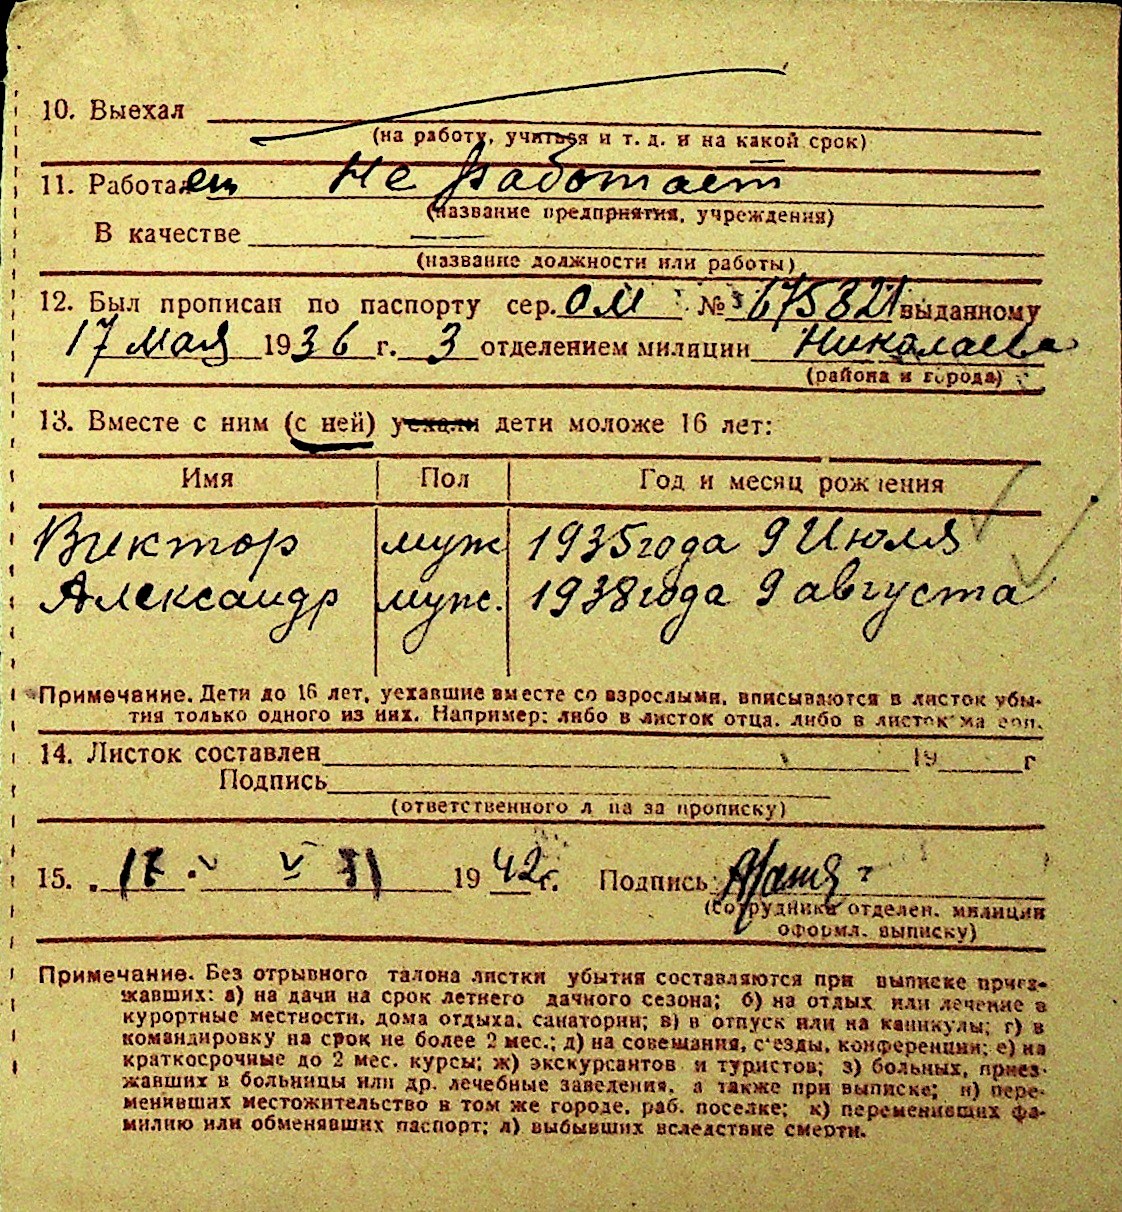 10. Выехал
(на работу, учиться и т. д. и на какой срок)
11. Работает Не работает
(название предприятия, учреждения)
В качестве —
(название должности или работы)
12. Был прописан по паспорту сер. ОМ № 675821 выданному
17 мая 1936 г. 3 отделением милиции Николаева
(района и города)
13. Вместе с ним (с ней) уехали дети моложе 16 лет:
Имя Пол Год и месяц рождения
Виктор муж 1935 года 9 Июля
Александр муж. 1938 года 9 августа
Примечание. Дети до 16 лет, уехавшие вместе со взрослыми, вписываются в листок убы-
тия только одного из них. Например: либо в листок отца, либо в листок матери.
14. Листок составлен 19 г
Подпись
(ответственного лица за прописку)
15. 1942 г. Подпись
(сотрудника отделен. милиции
оформл. выписку)
Примечание. Без отрывного талона листки убытия составляются при выписке приез-
жавших: а) на дачи на срок летнего дачного сезона; б) на отдых или лечение в
курортные местности, дома отдыха, санатории; в) в отпуск или на каникулы; г) в
командировку на срок не более 2 мес.; д) на совещания, с'езды, конференции; е) на
краткосрочные до 2 мес. курсы; ж) экскурсантов и туристов; з) больных, приез-
жавших в больницы или др. лечебные заведения, а также при выписке; и) пере-
менивших местожительство в том же городе, раб. поселке; к) переменивших фа-
милию или обменявших паспорт; л) выбывших вследствие смерти.